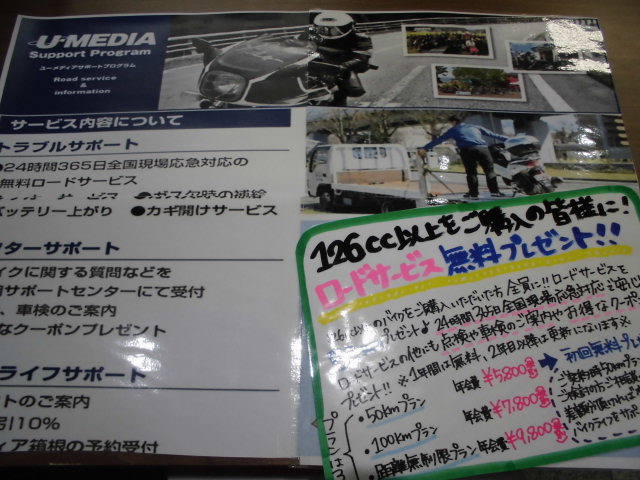 U-MEDIA
Support Program
ユーメディアサポートプログラム
Road service
&
information
サービス内容について
トラブルサポート
●24時間365日全国現場応急対応の
無料ロードサービス
バッテリー上がり ●カギ開けサービス
ターサポート
イクに関する質問などを
サポートセンターにて受付
、車検のご案内
なクーポンプレゼント
ライフサポート
ントのご案内
引10%
ィア箱根の予約受付
126cc以上をご購入の皆様に!
ロードサービス無料プレゼント!!
のバイクをご購入いただいた方全員に!!ロードサービスを
プレゼント♪24時間365日全国現場応急対応で安心
ロードサービスの他にも点検や車検のご案内やお得なクーポン
プレゼント!! ※1年間は無料、2年目以降は更新になります※
プランは3
・50kmプラン 年会費¥5,800
・100kmプラン 年会費¥7,800
・距離無制限プラン 年会費¥9,800
初回無料プレ